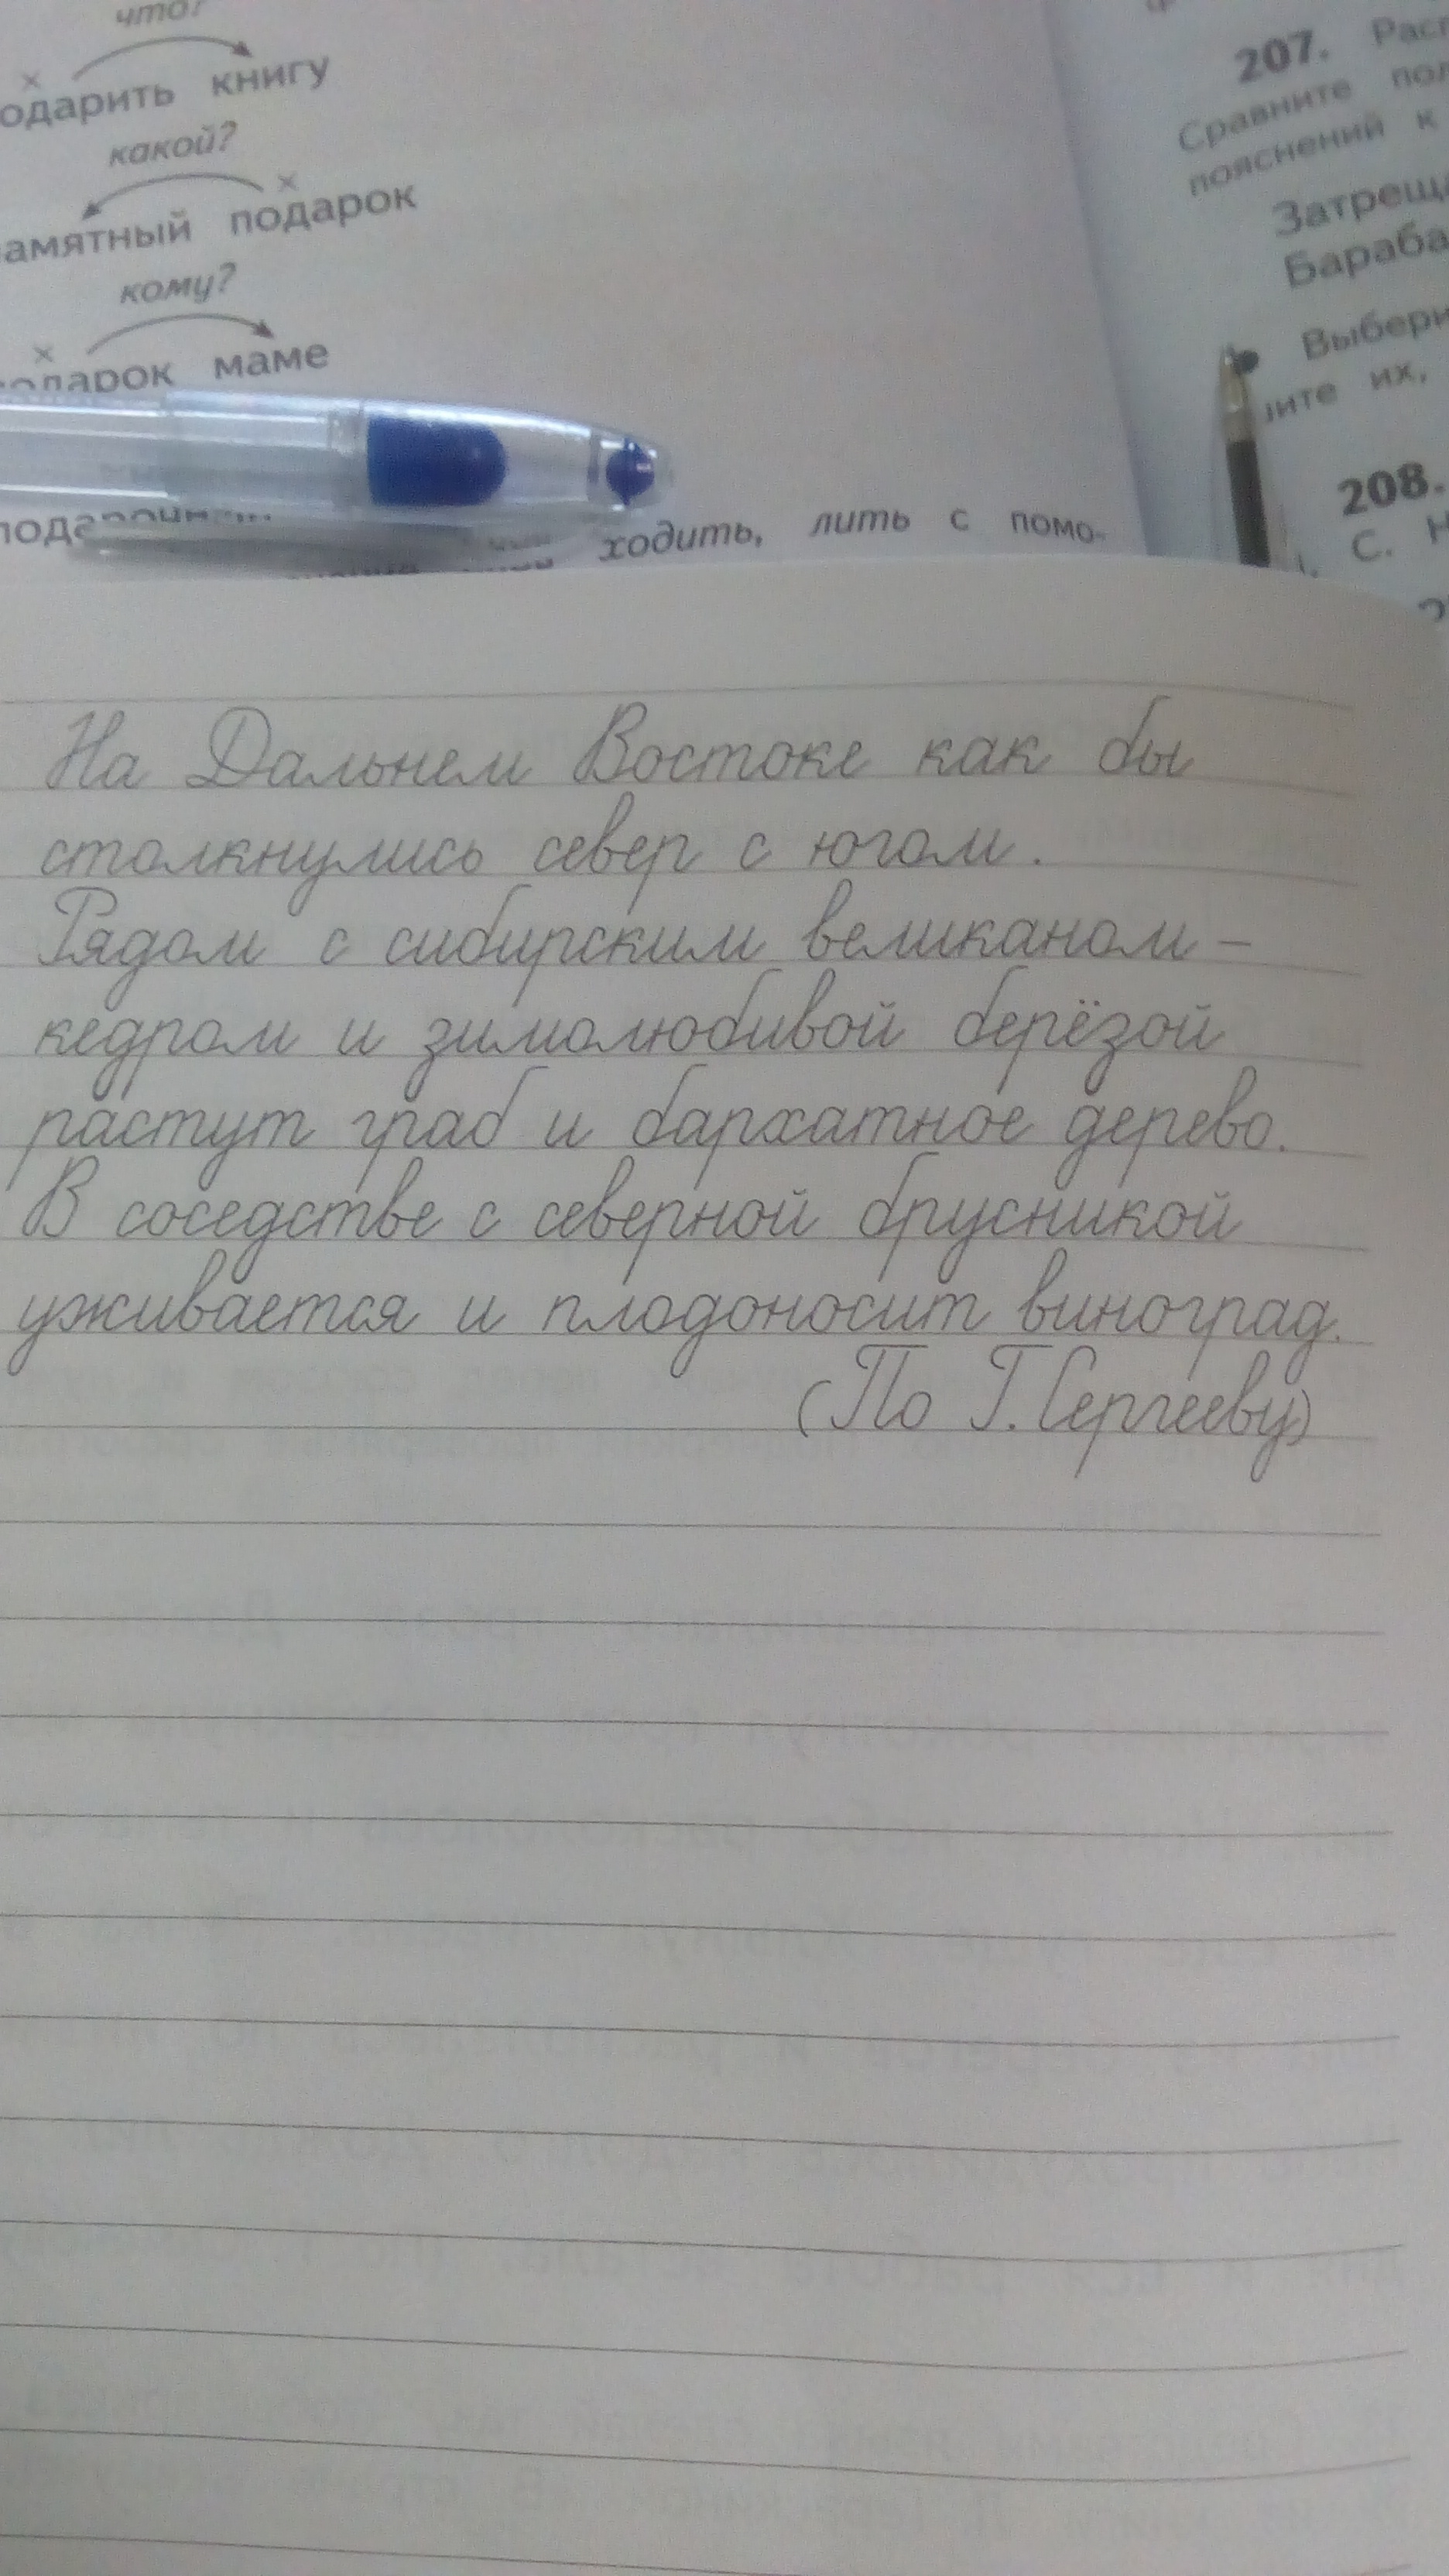 что?
книгу
какой?
подарок
кому?
маме
ходить, лить с помо-
207.
Сравните
пояснений к
208.
С.
На Дальнем Востоке как бы
столкнулись север с югом.
Рядом с сибирским великаном –
кедром и зимолюбивой берёзой
растут граб и бархатное дерево.
В соседстве с северной брусникой
уживается и плодоносит виноград.
(По Г. Сергееву)